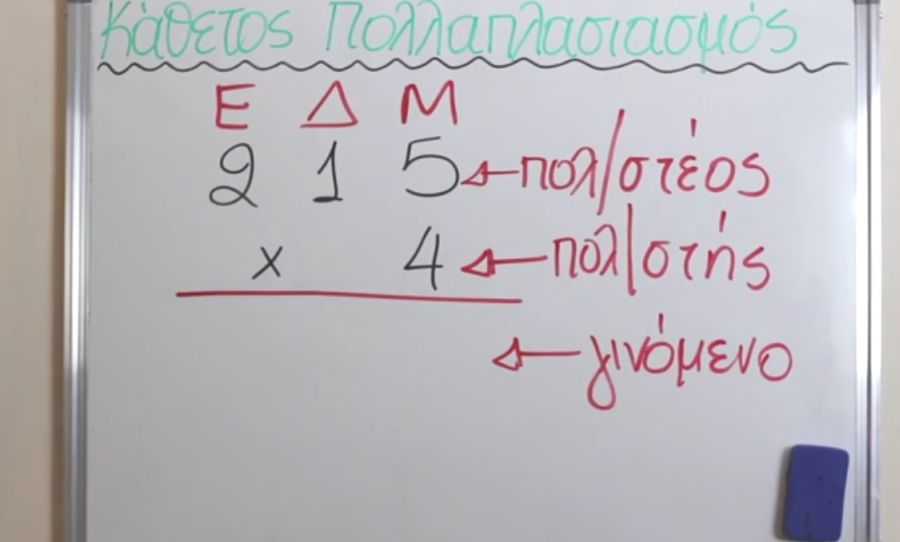 Κάθετος Πολλαπλασιασμός
Ε Δ Μ
2 1 5 ← πολ/στέος
x 4 ← πολ/στής
← γινόμενο